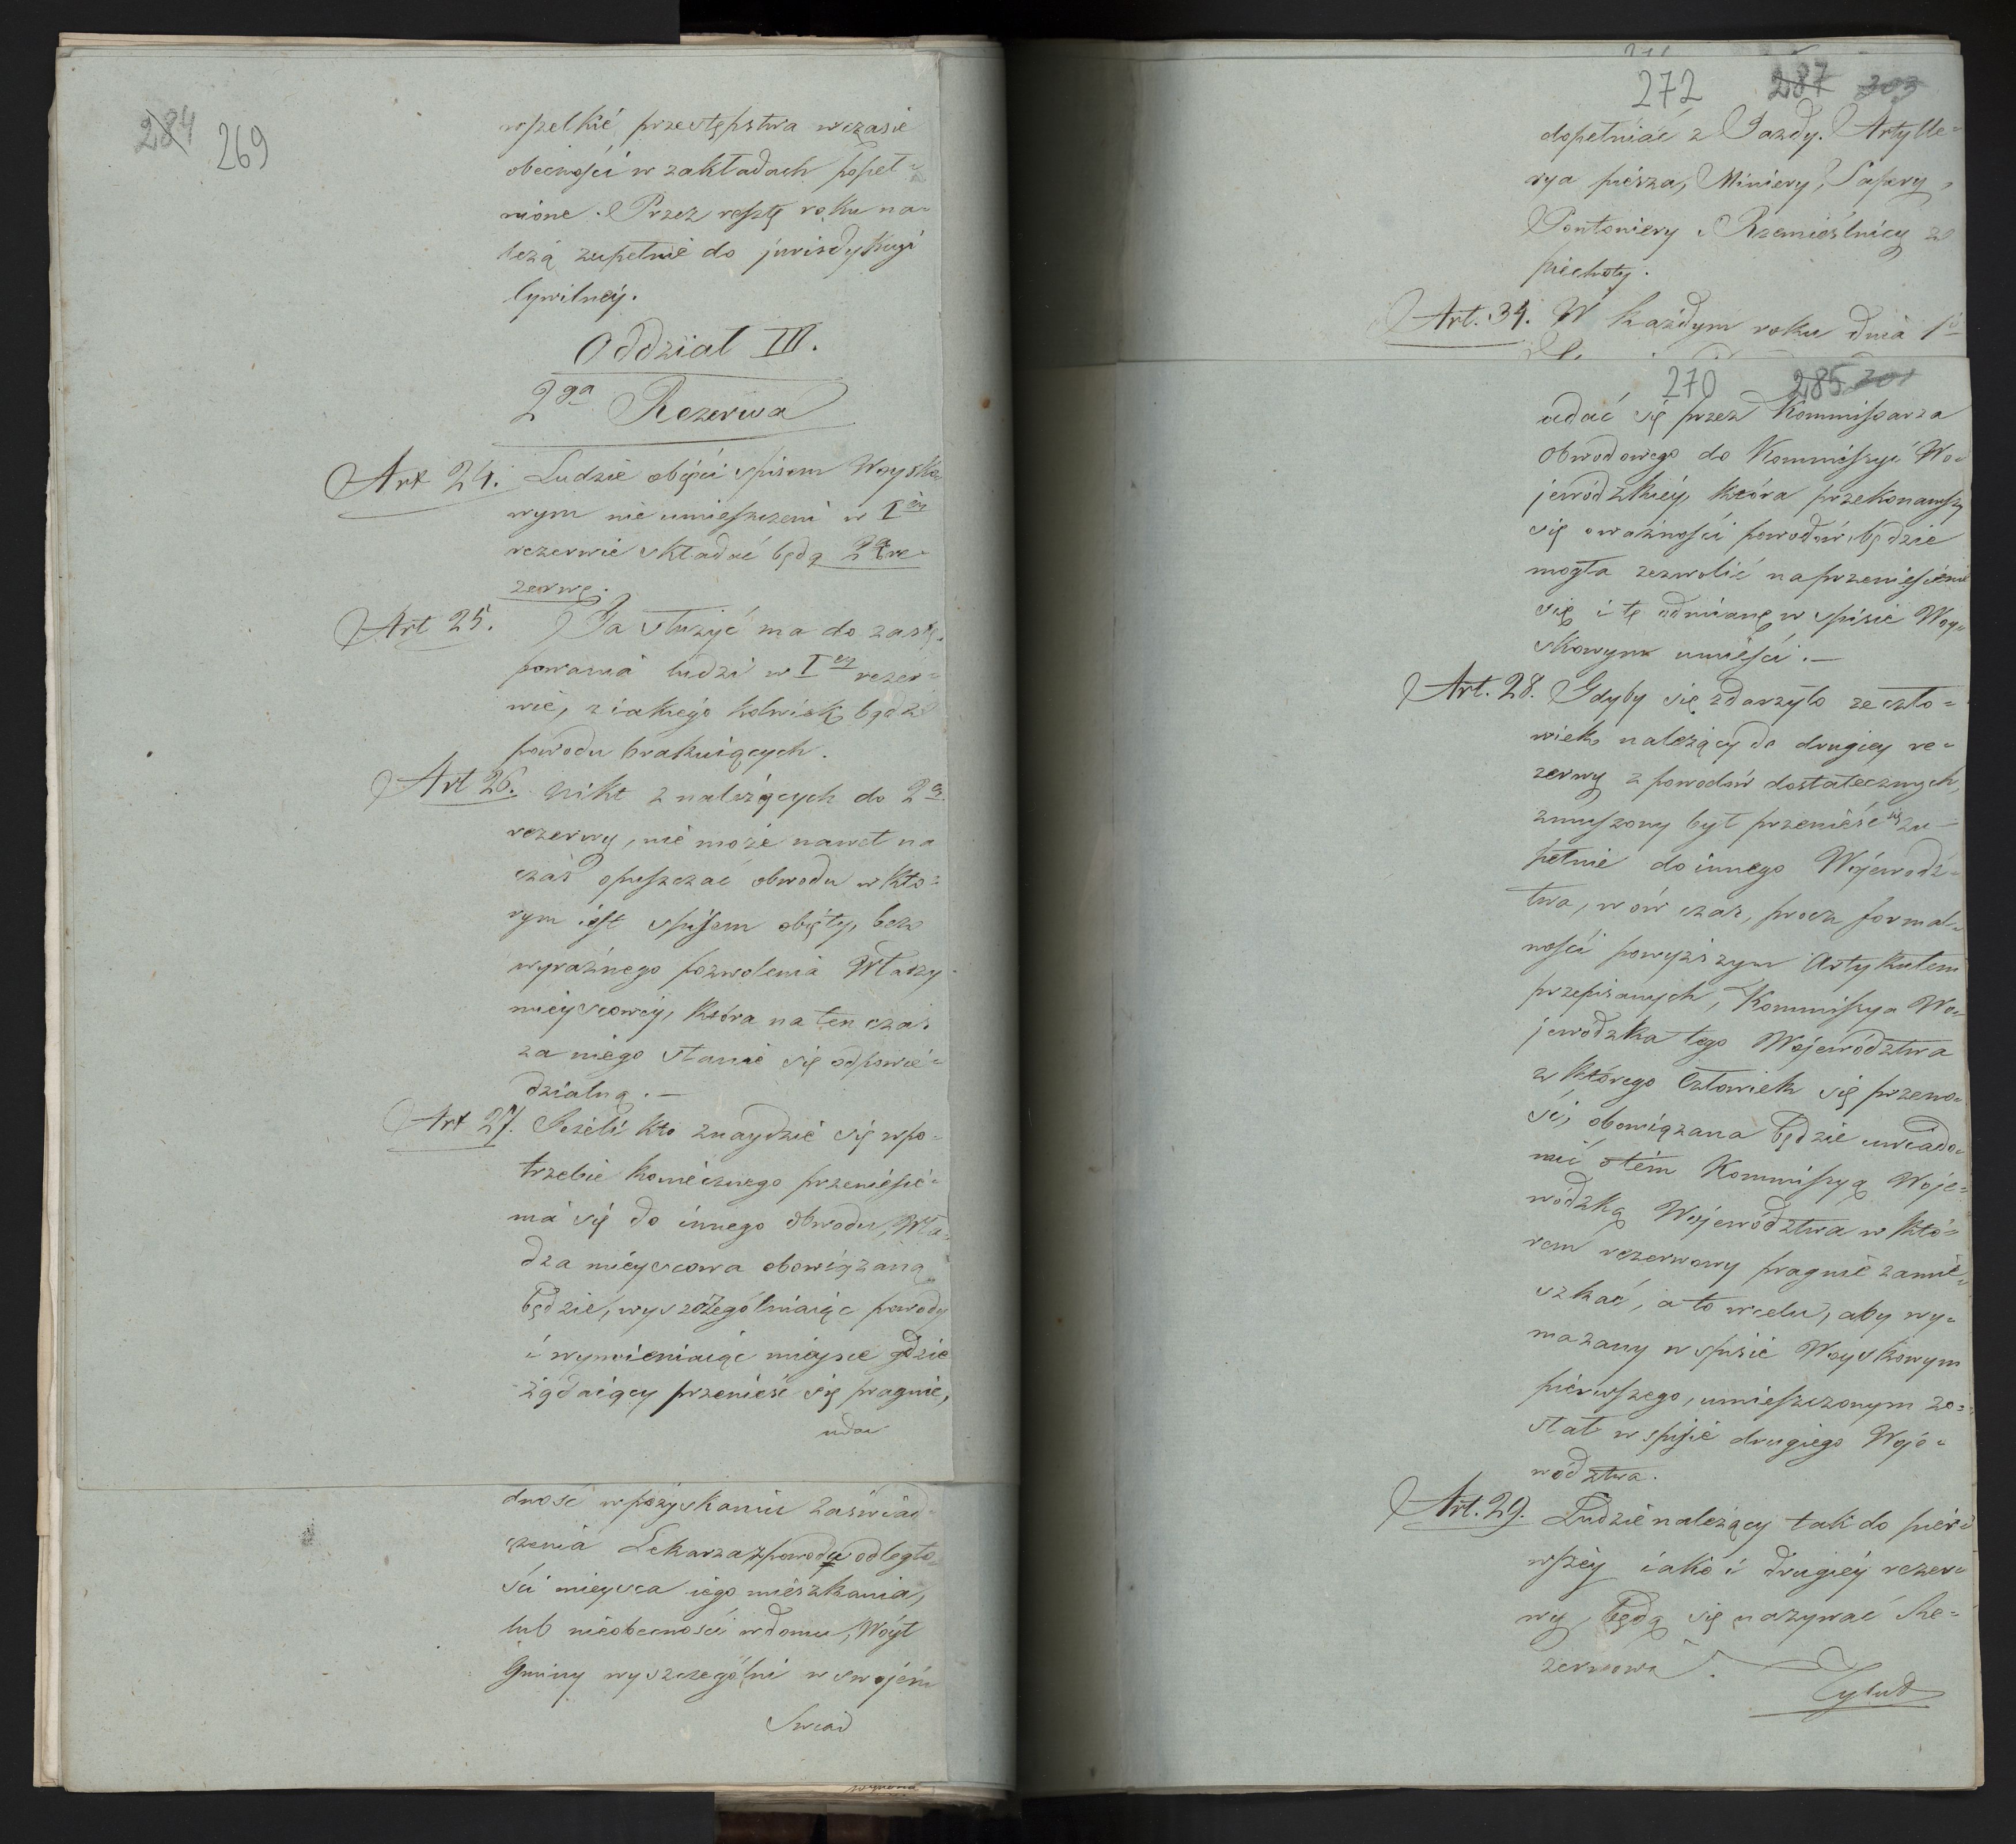 284 269
wszelkié przestępstwa wczasie
obecności w zakładach popeł=
nione. Przez resztę roku na=
leżą zupełnie do jurisdykcyi
Cywilnéy.
Oddział III.
2ga Rezerwa
Art 24. Ludzie obięci spisem Woysko
wym nie umieszczeni w Iéy
rezerwie składać będą 2ą re=
zerwę.
Art 25. Ta służyć ma do zastę=
powania ludzi w Iéy rezer=
wie, z iakiego kolwiek bądź
powodu brakuiących.
Art 26. Nikt z należących do 2éy
rezerwy, nié może nawet na
czas opuszczać obwodu w któ=
rym iest spisem obięty, bez
wyraźnego pozwolenia Władzy
mieyscowey, która na ten czas
za niego stanie się odpowié=
dzialną. —
Art 27. Jeżeli kto znaydzie się w po=
trzebie koniecznego przeniesié=
nia się do innego obwodu, Wła=
dza miéyscowa obowiązaną
będzie, wyszczególniaiąc powody
i wymieniaiąc miéjsce gdzie
żądaiący przenieść się pragnie,
udać
dność w pozyskaniu zaświad=
czenia Lekarza z powodu odległo=
ści mieysca iego mieszkania,
lub nieobecności w domu, Wóyt
Gminy wyszczególni w swojém
Swiad
272 287 303
dopełniać z Jazdy. Artylle=
rya piesza, Miniery, Sapery,
Pontoniery i Rzemieślnicy z
piechoty.
Art. 34. W każdym roku dnia 1o
270 285 301
udać się przez Kommissarza
Obwodowego do Kommissyi Wo=
jewódzkiéy, która przekonawszy
się o ważności powodów, będzie
mogła zezwolić na przeniesienie
się i tę odmianę w spisie Woy=
skowym umieści. —
Art. 28. Gdyby się zdarzyło że czło=
wiek należący do drugiey re=
zerwy z powodów dostatecznych,
zmuszony był przenieść się zu=
pełnie do innego Wojewódz=
twa, w ów czas, procz formal=
ności powyższym Artykułem
przepisanych, Kommissya Wo=
jewódzka tego Województwa
z którego Człowiek się przeno=
si, obowiązana będzie uwiado=
mić o tém Kommissyą Woje=
wódzką Województwa w któ=
rem rezerwowy pragnie zamie=
szkać, a to w celu, aby wy=
mazany w spisie Woyskowym
pierwszego, umieszczonym zo=
stał w spisie drugiego Woje=
wództwa.
Art. 29. Ludzie należący tak do pier=
wszéy iako i drugiéy rezer=
wy, będą się nazywać Re=
zerwowi.
Tytuł